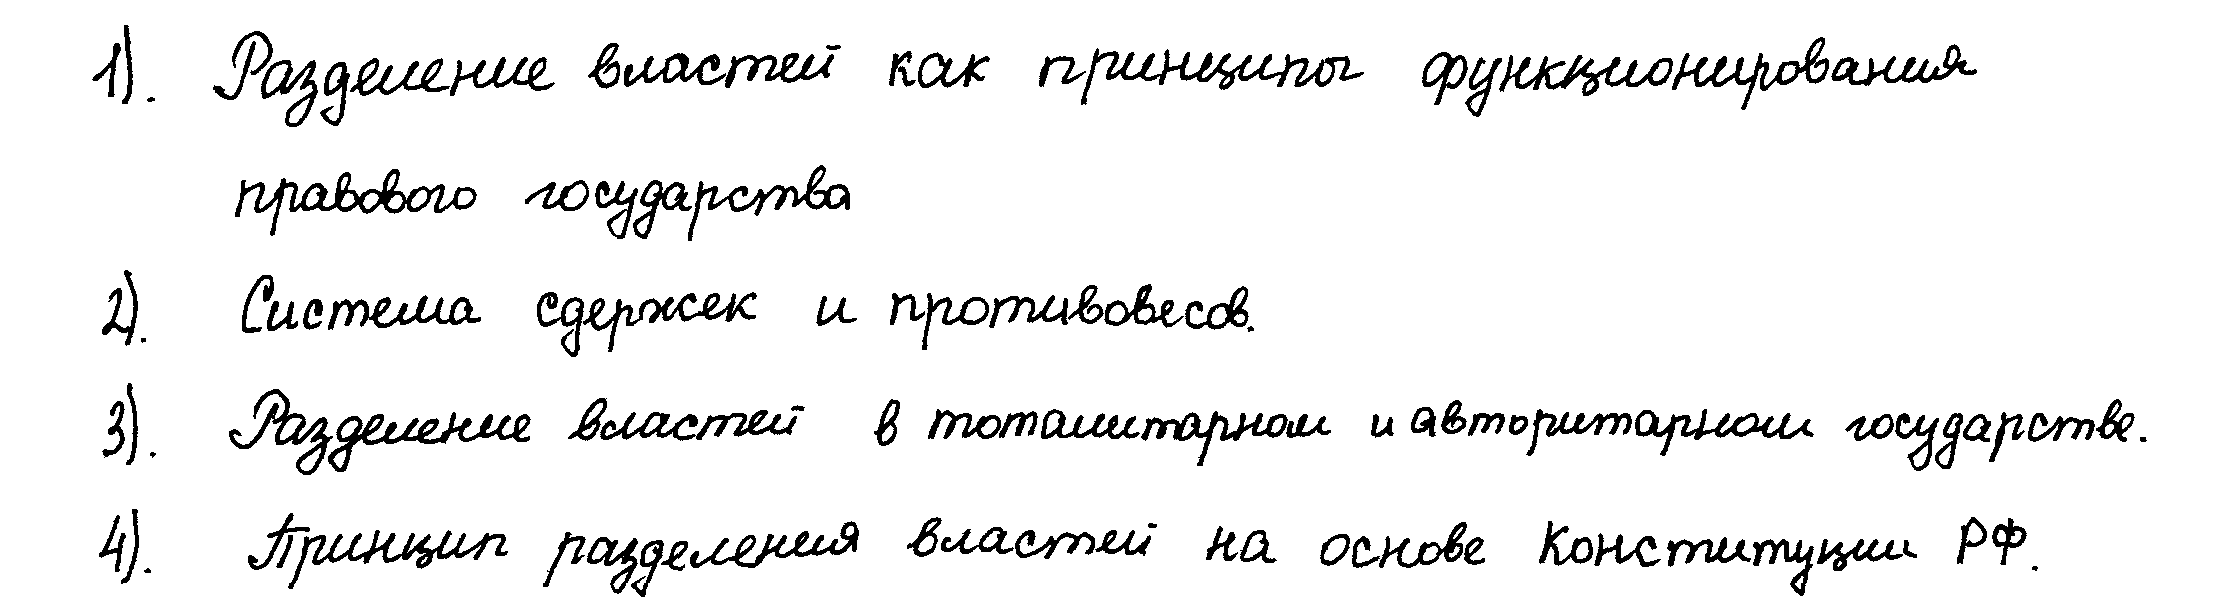 1). Разделение властей как принципы функционирования
правового государства
2). Система сдержек и противовесов.
3). Разделение властей в тоталитарном и авторитарном государстве.
4). Принцип разделения властей на основе Конституции РФ.